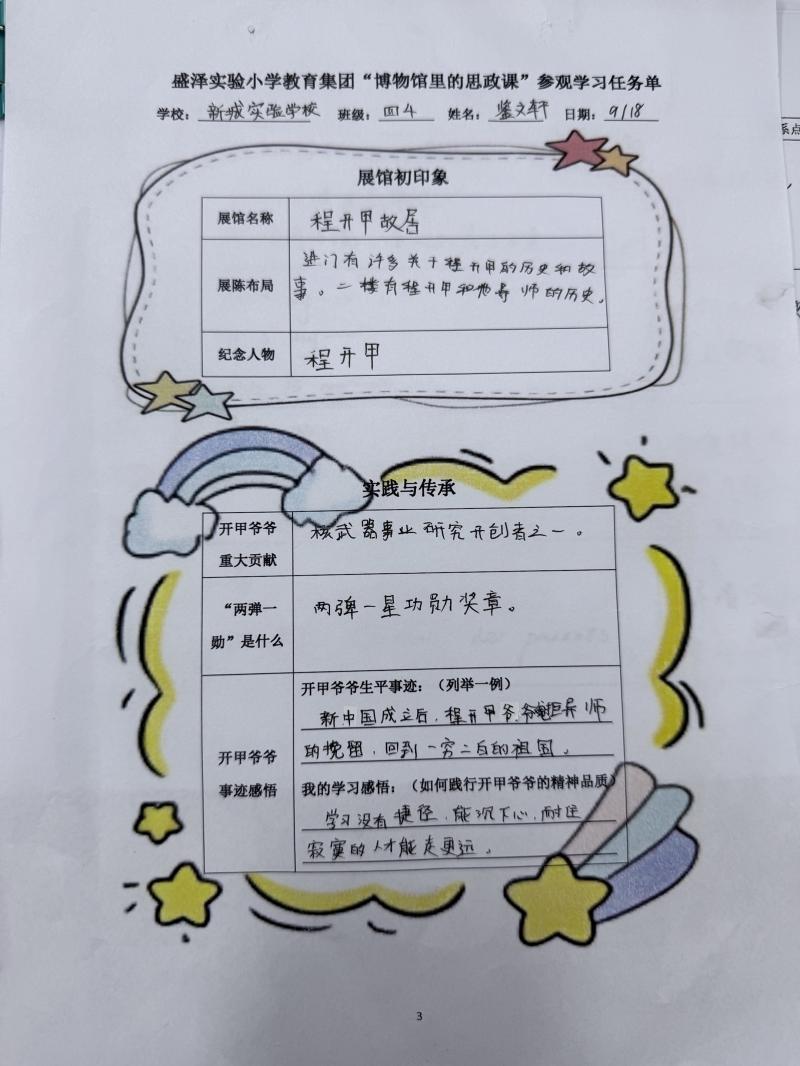 盛泽实验小学教育集团“博物馆里的思政课”参观学习任务单
学校：新城实验学校 班级：四4 姓名：文轩 日期：9/18
展馆初印象
展馆名称 程开甲故居
展陈布局 进门有许多关于程开甲的历史和故
事。二楼有程开甲和他导师的历史。
纪念人物 程开甲
实践与传承
开甲爷爷
重大贡献
核武器事业研究开创者之一。
“两弹一
勋”是什么
两弹一星功勋奖章。
开甲爷爷
事迹感悟
开甲爷爷生平事迹：（列举一例）
新中国成立后，程开甲爷爷拒导师
的挽留，回到一穷二白的祖国。
我的学习感悟：（如何践行开甲爷爷的精神品质）
学习没有捷径，能沉下心，耐住
寂寞的人才能走更远。
3